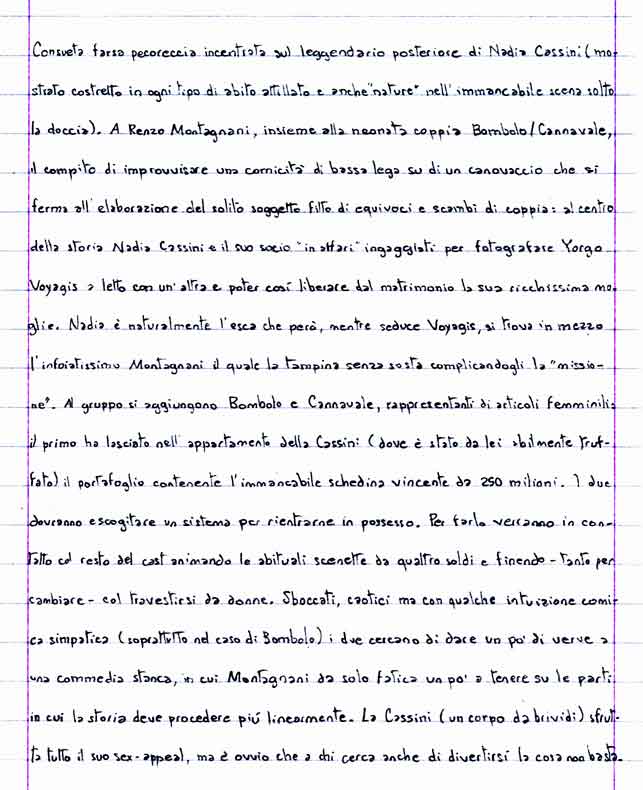 Consueta farsa pecoreccia incentrata sul leggendario posteriore di Nadia Cassini (mo-
strato costretto in ogni tipo di abito attillato e anche "nature" nell'immancabile scena sotto
la doccia). A Renzo Montagnani, insieme alla neonata coppia Bombolo/Cannavale,
il compito di improvvisare una comicità di bassa lega su di un canovaccio che si
ferma all'elaborazione del solito soggetto fitto di equivoci e scambi di coppia: al centro
della storia Nadia Cassini e il suo socio "in affari" ingaggiati per fotografare Yorgo
Voyagis a letto con un'altra e poter così liberare dal matrimonio la sua ricchissima mo-
glie. Nadia è naturalmente l'esca che però, mentre seduce Voyagis, si trova in mezzo
l'infoiatissimo Montagnani il quale la tampina senza sosta complicandogli la "missio-
ne". Al gruppo si aggiungono Bombolo e Cannavale, rappresentanti di articoli femminili:
il primo ha lasciato nell'appartamento della Cassini (dove è stato da lei abilmente truf-
fato) il portafoglio contenente l'immancabile schedina vincente da 250 milioni. I due
dovranno escogitare un sistema per rientrarne in possesso. Per farlo verranno in con-
tatto col resto del cast animando le abituali scenette da quattro soldi e finendo - tanto per
cambiare - col travestirsi da donne. Sboccati, caotici ma con qualche intuizione comi-
ca simpatica (soprattutto nel caso di Bombolo) i due cercano di dare un po' di verve a
una commedia stanca, in cui Montagnani da solo fatica un po' a tenere su le parti
in cui la storia deve procedere più linearmente. La Cassini (un corpo da brividi) sfrut-
ta tutto il suo sex-appeal, ma è ovvio che a chi cerca anche di divertirsi la cosa non basta.